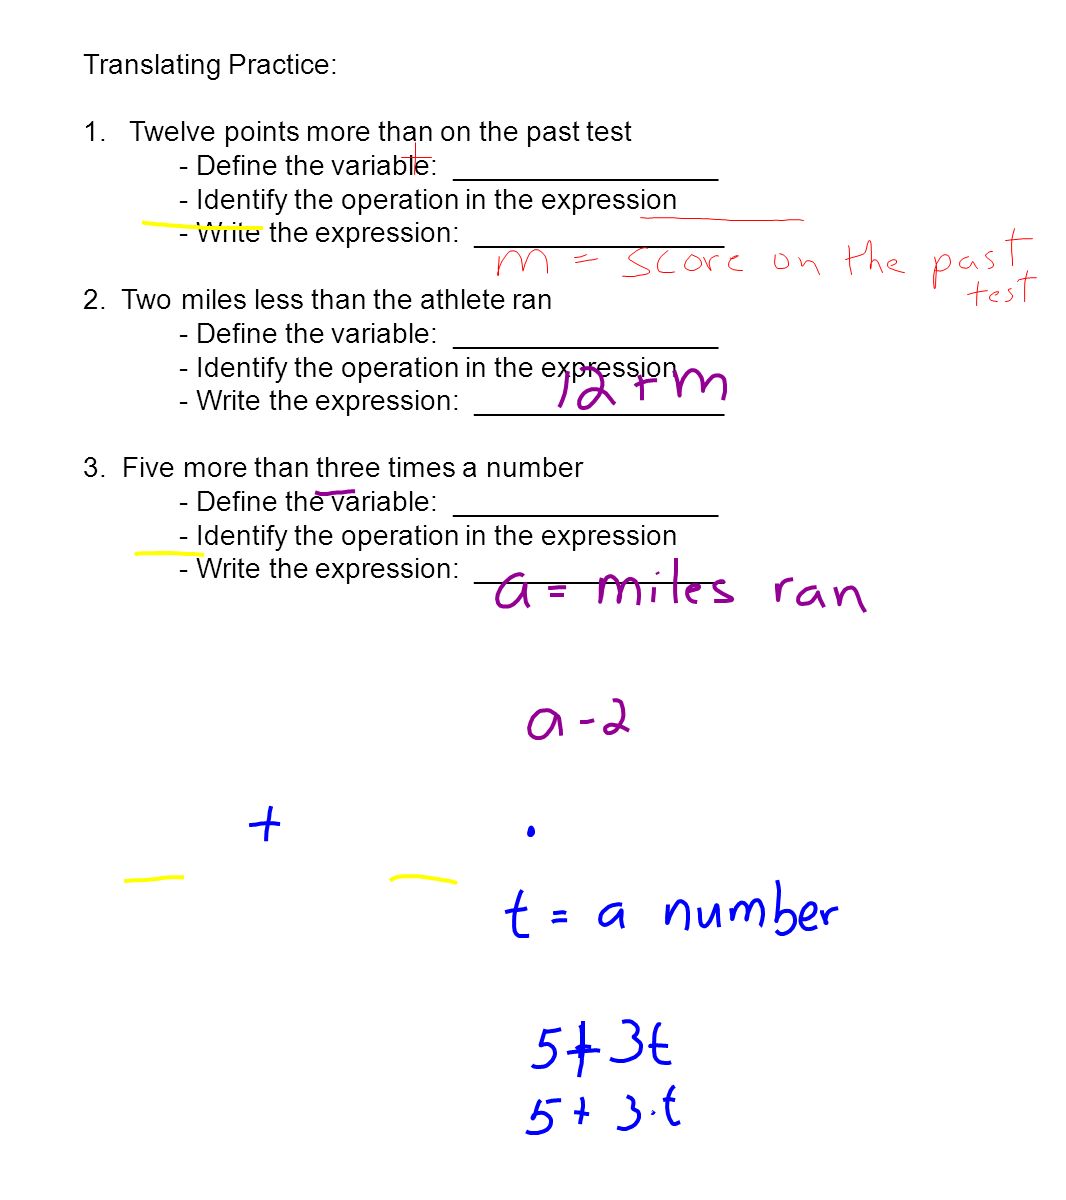 Translating Practice:
1. Twelve points more than on the past test
+
- Define the variable: ____________________
- Identify the operation in the expression
- Write the expression: ____________________
m = score on the past
test
2. Two miles less than the athlete ran
- Define the variable: ____________________
- Identify the operation in the expression
12 + m
- Write the expression: ____________________
3. Five more than three times a number
- Define the variable: ____________________
- Identify the operation in the expression
- Write the expression: ____________________
a = miles ran
a - 2
+ .
t = a number
5 + 3t
5 + 3.t